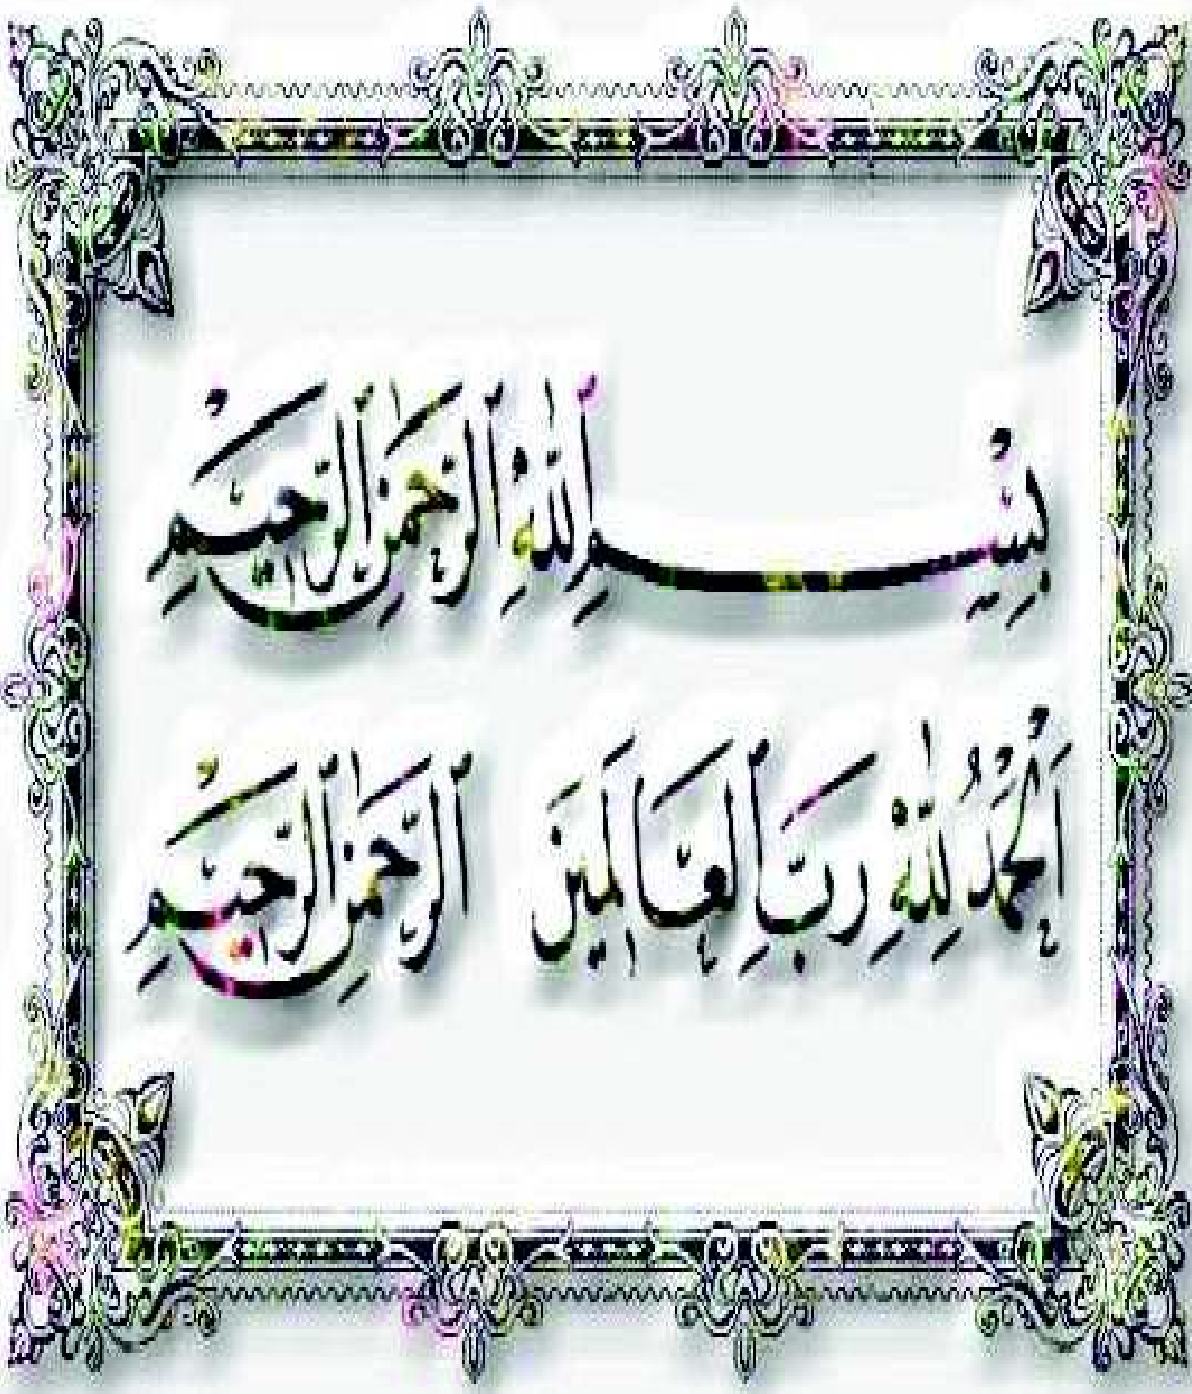 بِسْمِ ٱللَّهِ ٱلرَّحْمَٰنِ ٱلرَّحِيمِ
ٱلْحَمْدُ لِلَّهِ رَبِّ ٱلْعَالَمِينَ ٱلرَّحْمَٰنِ ٱلرَّحِيمِ